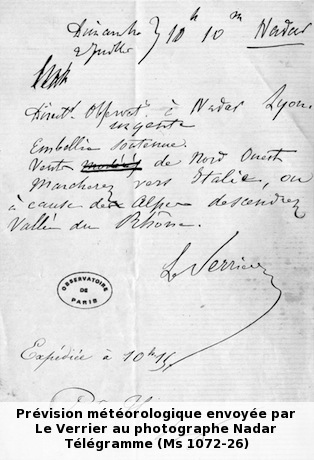 Dimanche
2 Juillet } 10h 10m Nadar
Direct. Observ. à Nadar Lyon.
urgente
Embellie soutenue.
Vents modérés de Nord Ouest
Marcherez vers Italie, ou
à cause des Alpes descendrez
Vallée du Rhône.
Le Verrier
OBSERVATOIRE
DE
PARIS
Expédiée à 10h 15
Prévision météorologique envoyée par
Le Verrier au photographe Nadar
Télégramme (Ms 1072-26)